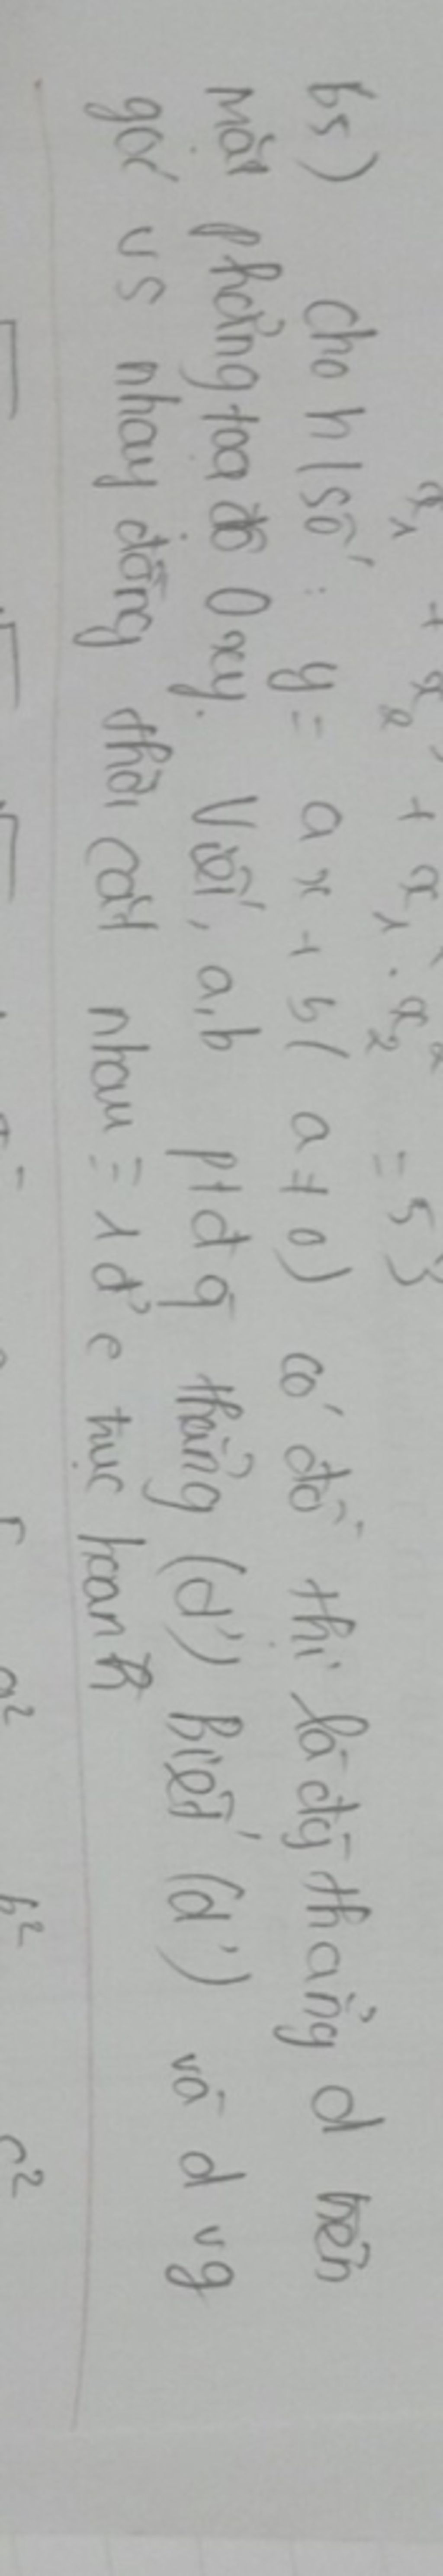 x₁ + x₂ + x₁ . x₂² = 5 }
b5) Cho h/số : y = ax + b ( a ≠ 0) có đồ thị là đg thẳng d trên
mặt phẳng tọa độ Oxy. Với, a,b ptđg thẳng (d') biết (d') và d vg
góc vs nhay đồng thời cắt nhau = 1 đ' e trục hoanh
a² b² c²